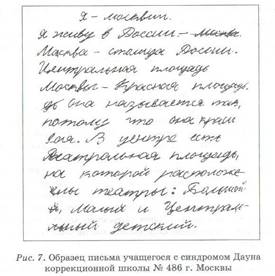 Я - москвич.
Я живу в России - Москва.
Москва - столица России.
Центральная площадь
Москвы - Красная площа-
дь она называется так,
потому что она краси
вая. В центре есть
Театральная площадь,
на которой расположе
ны театры: Большой
й, Малый и Централь-
ный детский.
Рис. 7. Образец письма учащегося с синдромом Дауна
коррекционной школы № 486 г. Москвы